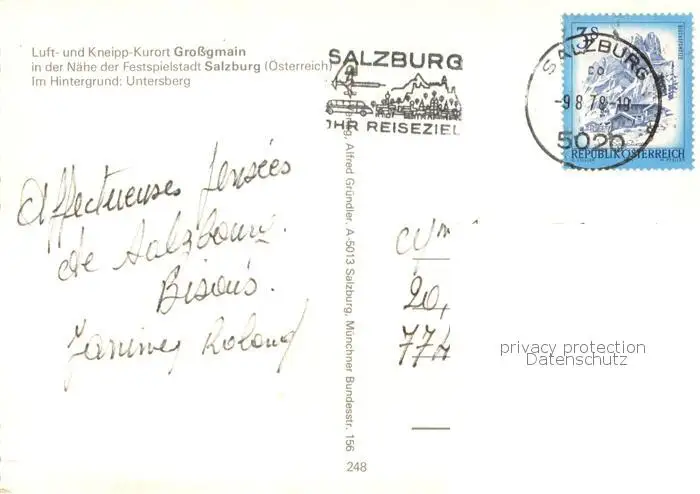 Luft- und Kneipp-Kurort Großgmain
in der Nähe der Festspielstadt Salzburg (Österreich)
Im Hintergrund: Untersberg
SALZBURG
IHR REISEZIEL
SALZBURG
-9.8.78-19
5020
3S
REPUBLIK ÖSTERREICH
Affectueuses pensées
de Salzbourg.
Bisous.
Janine Roland
Verlag Alfred Gründler, A-5013 Salzburg, Münchner Bundesstr. 156
248
20,
774
privacy protection
Datenschutz